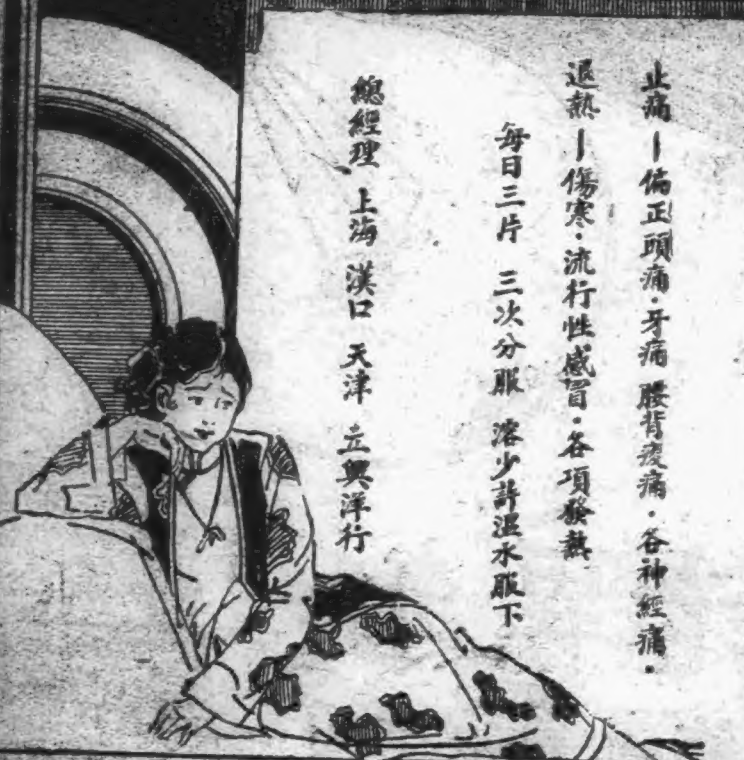 止痛—偏正頭痛·牙痛 腰背痠痛·各神經痛·
退熱—傷寒·流行性感冒·各項發熱
每日三片 三次分服 溶少許溫水服下
總經理 上海 漢口 天津 立興洋行